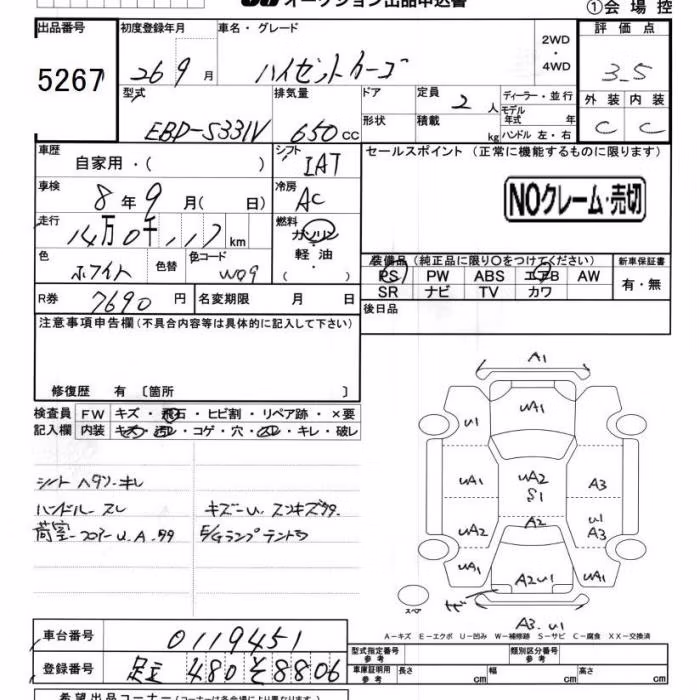 オークション出品申込書
①会場控
出品番号 初度登録年月 車名・グレード 2WD・4WD 評価点
5267 26 9月 ハイゼットカーゴ 3.5
型式 排気量 ドア 定員 2人 ディーラー・並行 外装 内装
EBD-S331V 650cc 形状 積載 kg モデル年式 年 ハンドル 左・右 C C
車歴 自家用・( ) シフト IAT セールスポイント (正常に機能するものに限ります)
車検 8年9月( 日) 冷房 AC NOクレーム・売切
走行 14万0千,117km 燃料 ガソリン・軽油・( )
色 ホワイト 色替 色コード W09 装備品(純正品に限り〇をつけてください) 新車保証書
PS PW ABS エアB AW 有・無
R券 7690円 名変期限 月 日 SR ナビ TV カワ
後日品
注意事項申告欄(不具合内容等は具体的に記入して下さい)
修復歴 有〔箇所 〕
検査員 FW キズ・飛石・ヒビ割・リペア跡・×要
記入欄 内装 キズ・汚レ・コゲ・穴・スレ・キレ・破レ
シート ヘタリ・キレ
ハンドル スレ キズ・U.
荷室・フロアー U.A. E/Gランプテントウ
A1
UA1
U1
UA1 UA2 S1 A3
UA2 A2 U1 A3
UA1 A2U1 UA1
スペア
A3.U1
A−キズ E−エクボ U−凹み W−補修跡 S−サビ C−腐食 XX−交換済
車台番号 0119451 型式指定番号 参考 類別区分番号 参考
登録番号 足立 480 そ 8806 車庫証明用 参考 長さ cm 幅 cm 高さ cm
希望出品コーナー(コーナーは各会場により異なります。)